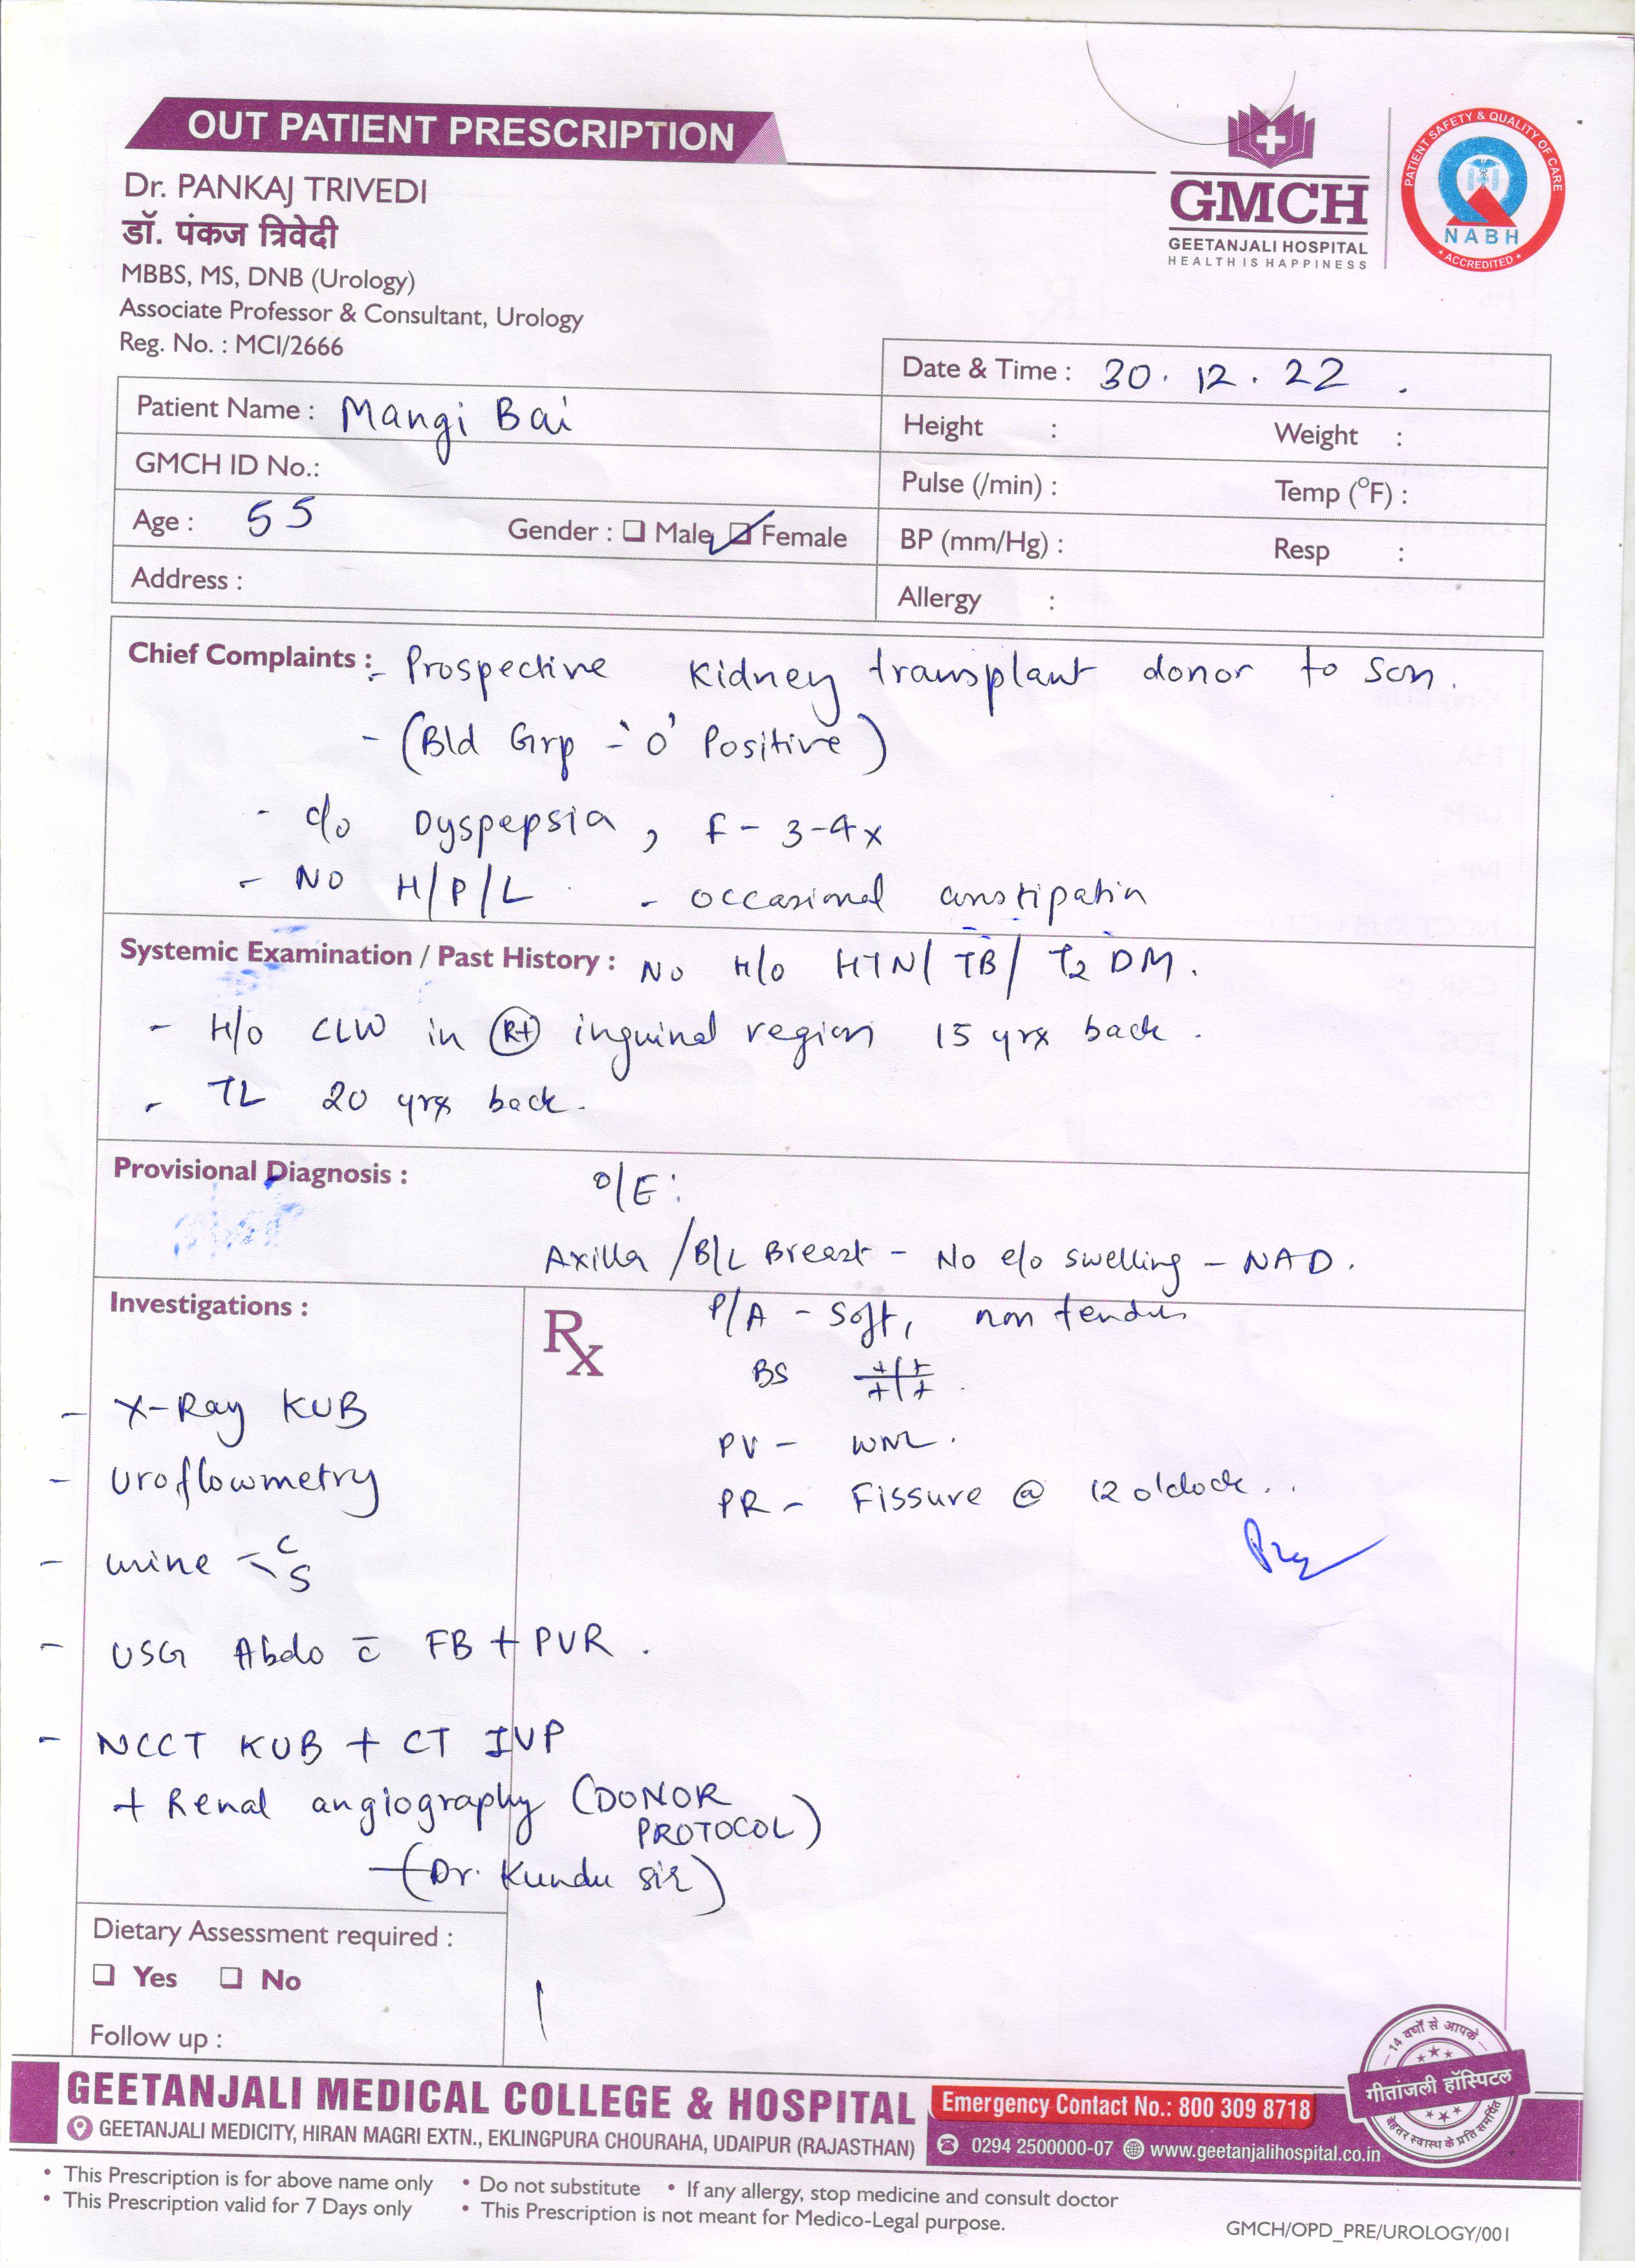 OUT PATIENT PRESCRIPTION
Dr. PANKAJ TRIVEDI
डॉ. पंकज त्रिवेदी
MBBS, MS, DNB (Urology)
Associate Professor & Consultant, Urology
Reg. No. : MCI/2666
GMCH
GEETANJALI HOSPITAL
HEALTH IS HAPPINESS
PATIENT SAFETY & QUALITY OF CARE
NABH
ACCREDITED
Date & Time : 30. 12. 22 .
Patient Name : Mangi Bai
Height : Weight :
GMCH ID No.:
Pulse (/min) : Temp (°F) :
Age : 55 Gender : ☐ Male ☑ Female
BP (mm/Hg) : Resp :
Address :
Allergy :
Chief Complaints :- Prospective Kidney transplant donor to son.
- (Bld Grp - 'O' Positive)
- c/o Dyspepsia, F - 3-4x
- NO H/P/L - occasional constipatin
Systemic Examination / Past History : No H/o HTN/ TB/ T2 DM.
- H/o CLW in Rt inguinal region 15 yrs back.
- TL 20 yrs back.
Provisional Diagnosis : O/E:
Axilla /B/L Breast - No e/o swelling - NAD.
Investigations :
Rx
P/A - Soft, non tender
BS +/+ +/+
PV - WNL.
PR - Fissure @ 12 o'clock..
- X-Ray KUB
- Uroflowmetry
- urine - C S
- USG Abdo c̄ FB + PVR.
- NCCT KUB + CT IVP
+ Renal angiography (DONOR
PROTOCOL)
- (Dr. Kundu sir)
Dietary Assessment required :
☐ Yes ☐ No
Follow up :
14 वर्षों से आपके
गीतांजली हॉस्पिटल
बेहतर स्वास्थ के प्रति समर्पित
GEETANJALI MEDICAL COLLEGE & HOSPITAL
Emergency Contact No.: 800 309 8718
GEETANJALI MEDICITY, HIRAN MAGRI EXTN., EKLINGPURA CHOURAHA, UDAIPUR (RAJASTHAN)
0294 2500000-07 www.geetanjalihospital.co.in
• This Prescription is for above name only • Do not substitute • If any allergy, stop medicine and consult doctor
• This Prescription valid for 7 Days only • This Prescription is not meant for Medico-Legal purpose.
GMCH/OPD_PRE/UROLOGY/001